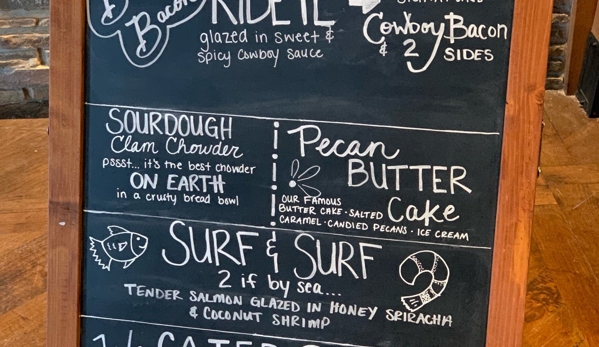 Bacon
RIBEYE
glazed in sweet &
spicy cowboy sauce
Cowboy Bacon
& 2 SIDES
SOURDOUGH
Clam Chowder
pssst... it's the best chowder
ON EARTH
in a crusty bread bowl
Pecan
BUTTER
Cake
OUR FAMOUS
BUTTER CAKE · SALTED
CARAMEL · CANDIED PECANS · ICE CREAM
SURF & SURF
2 if by sea...
TENDER SALMON GLAZED IN HONEY SRIRACHA
& COCONUT SHRIMP